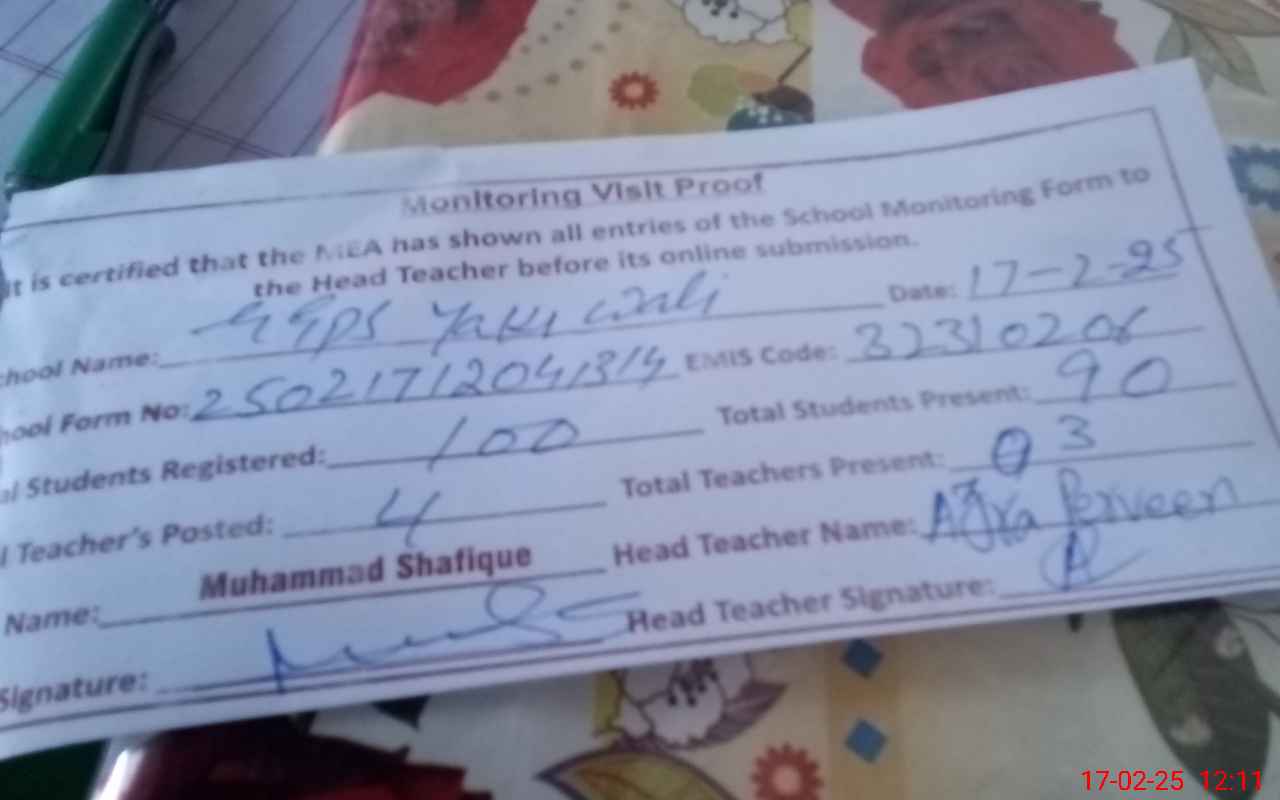 Monitoring Visit Proof
It is certified that the MEA has shown all entries of the School Monitoring Form to
the Head Teacher before its online submission.
chool Name: GGPS Date: 17-2-25
hool Form No: 25021712041314 EMIS Code: 32310206
al Students Registered: 100 Total Students Present: 90
l Teacher's Posted: 4 Total Teachers Present: 03
Name: Muhammad Shafique Head Teacher Name: Azra Perveen
Signature: Head Teacher Signature:
17-02-25 12:11